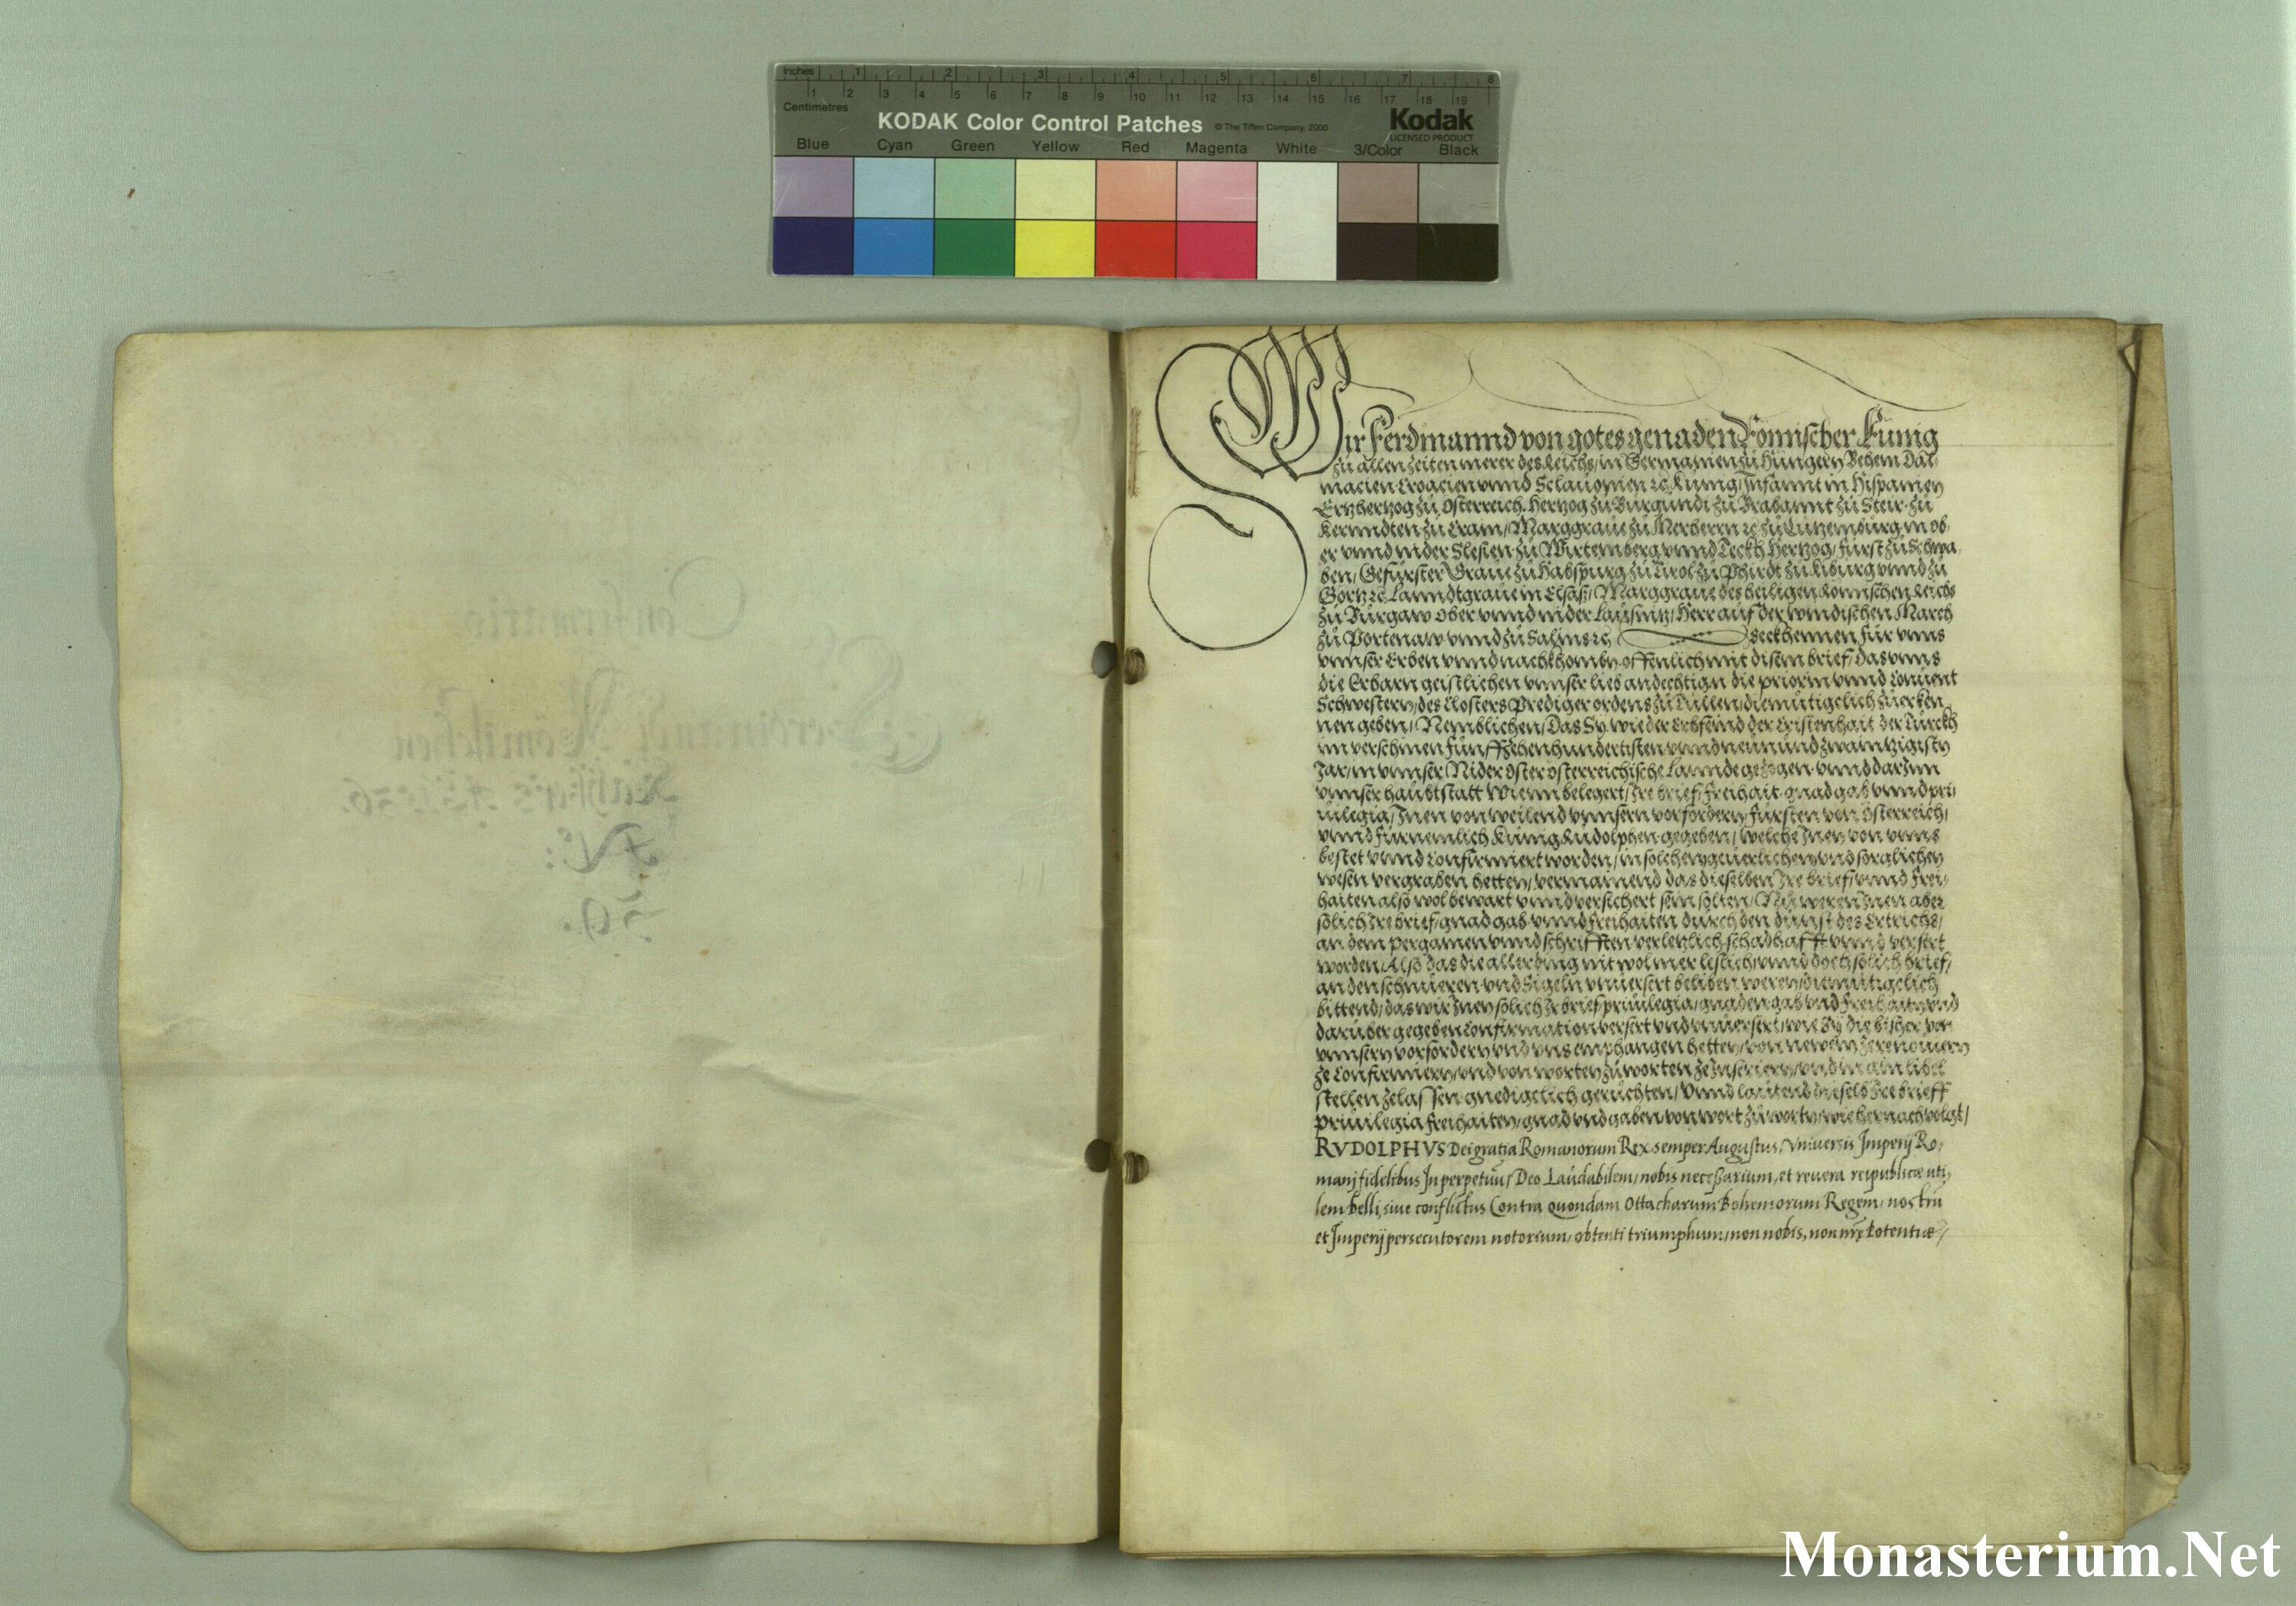 Inches 1 2 3 4 5 6 7 8
1 2 3 4 5 6 7 8 9 10 11 12 13 14 15 16 17 18 19
Centimetres
KODAK Color Control Patches © The Tiffen Company, 2000 Kodak
LICENSED PRODUCT
Blue Cyan Green Yellow Red Magenta White 3/Color Black
Confirmatio
Ferdinandi Römischen
N:
59.
Wir Ferdinannd von gotes genaden Römischer Kunig
zu allen Zeiten merer des Reichs, in Germanien zu Hungern Behem Dal
macien Croacien vnnd Sclauonien ꝛc Kunig, Infannt in Hispanien
Ertzhertzog zu Osterreich, Hertzog zu Burgundi zu Brabannt zu Steir zu
Kernndten zu Crain, Marggraue zu Merhern ꝛc zu Lutzemburg in ob
er vnnd nider Slesien zu Wirtemberg vnnd Teckh Hertzog, Furst zu Schwa
ben, Gefurster Graue zu Habspurg zu Tirol zu Phirdt zu Kiburg vnnd zu
Gortz ꝛc Lanndtgraue in Elsass, Marggraue des heiligen Römischen Reichs
zu Burgaw ober vnnd nider Lausnitz, Herr auf der windischen March
zu Portenaw vnnd zu Salins ꝛc Beckhennen fur vnns
vnnser Erben vnnd nachkhomben offenlich mit disem brief, Das vnns
die Erbarn geistlichen vnnser lieb andechtign die priorin vnnd Conuent
Schwestern, des Closters Prediger ordens zu Tullen, diemutigelich zuerken
nen geben, Nemblichen, Das Sy wie der Erbfeind der Cristenhait der Turckh
im verschinen Funffzehenhundertisten vnnd neunundzwaintzigisten
Jar, in vnnser Nider osterreichische Lannde gezogen vnnd darinn
vnnser haubtstatt Wienn belegert, Ire brief, freihait gnad gab vnnd pri
uilegia, Inen von weilend vnnsern vorfordern, Fursten von Osterreich,
vnnd furnemlich Kunig Rudolphen gegeben, welche Inen von vnns
bestet vnnd Confirmiert worden, in solchen geuerlichen vnd sorglichen
wesen vergraben hetten, vermainend das dieselben Ire brief, vnnd Frei
haiten also wol bewart vnnd versichert sein solten, Nun weren Inen aber
solich Ire brief, gnad gab vnnd freihaiten durch den dunst des Ertrichs,
an dem pergamen vnnd schrifften verletzlich schadhafft vnnd versert
worden, Also das die allerding nit wol mer leslich, vnnd doch solich brief,
an den schnueren vnd Sigeln vnuersert beliben weren, diemutigelich
bittend, das wir Inen solich Ir brief, priuilegia, gnaden gab vnd Freihaiten vnd
daruber gegeben Confirmation versert vnd vnuersert, wie Sy die bisher von
vnnsern vorfordern vnd vns emphangen hetten, von newem ze renouiern
ze Confirmiern, vnd von worten zu worten ze Inseriern, vnd in ain libel
stellen ze lassen gnedigelich geruechten, Vnnd lautend dieselb Ire brieff
priuilegia freihaiten, gnad vnd gaben von wort zu worten, wie hernach volgt,
RVDOLPHVS Dei gratia Romanorum Rex semper Augustus, Vniuersis Imperij Ro,
manj fidelibus In perpetuũ, Deo Laudabilem, nobis necessarium, et reuera reipublicæ uti,
lem belli, siue conflictus Contra quondam Ottacharum Bohemorum Regem, nostrũ
et Imperij persecutorem notorium, obtenti triumphum, non nobis, non nr̃e Potentiæ,
Monasterium.Net